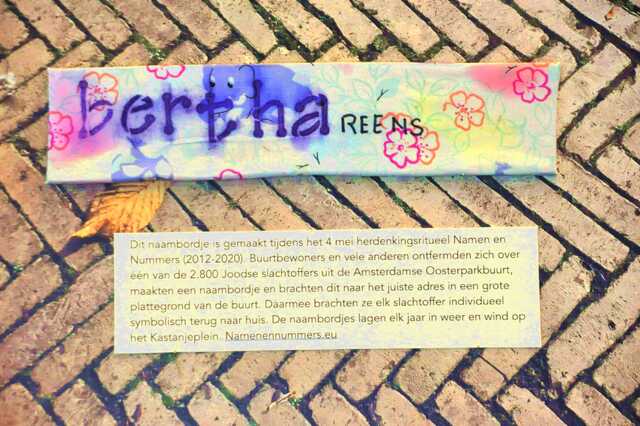 bertha REENS
Dit naambordje is gemaakt tijdens het 4 mei herdenkingsritueel Namen en
Nummers (2012-2020). Buurtbewoners en vele anderen ontfermden zich over
één van de 2.800 Joodse slachtoffers uit de Amsterdamse Oosterparkbuurt,
maakten een naambordje en brachten dit naar het juiste adres in een grote
plattegrond van de buurt. Daarmee brachten ze elk slachtoffer individueel
symbolisch terug naar huis. De naambordjes lagen elk jaar in weer en wind op
het Kastanjeplein. Namenennummers.eu